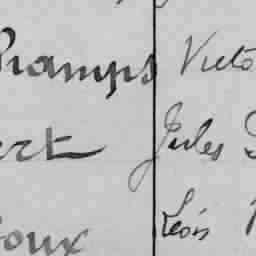 champs Victo
ert Jules
oux Léon